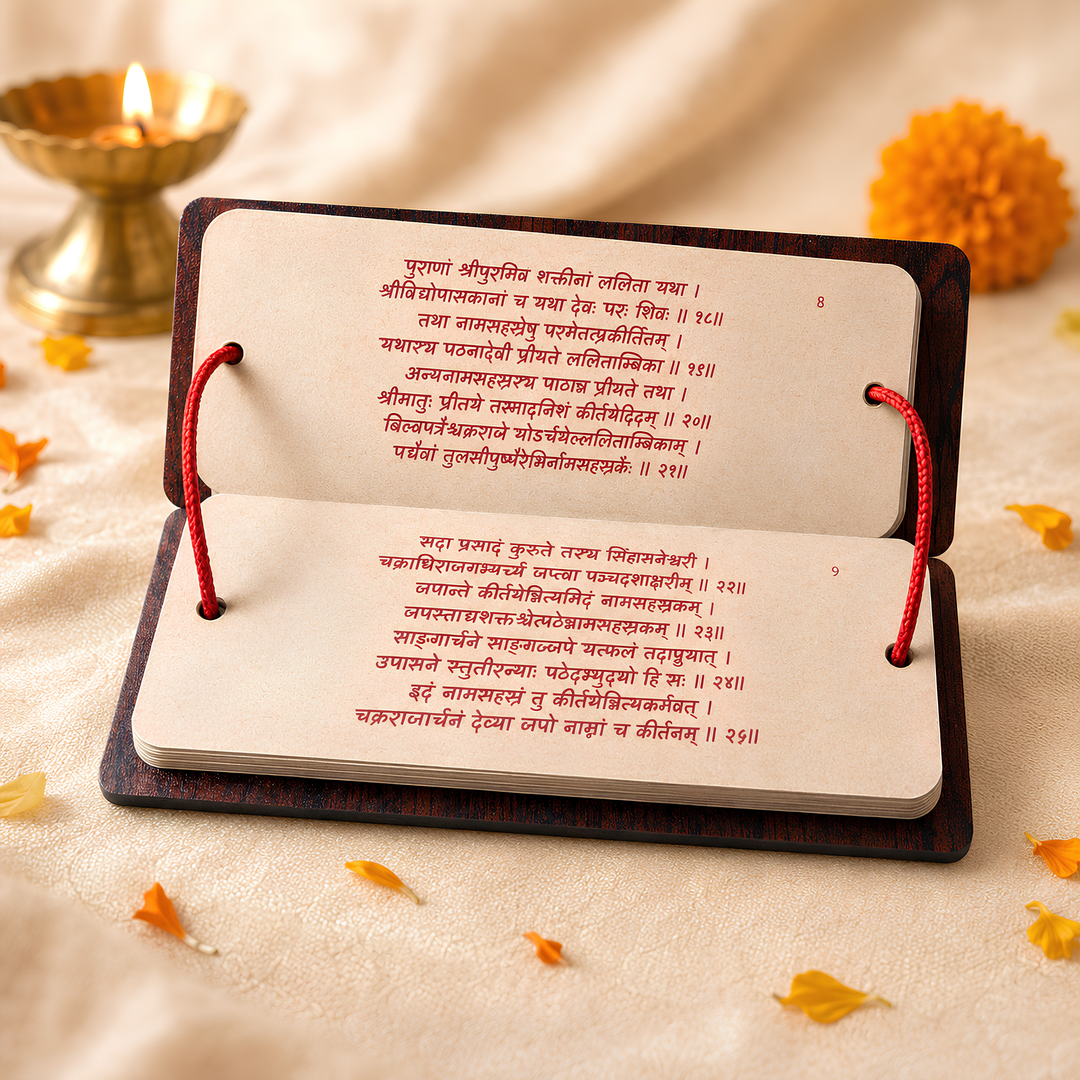 पुराणां श्रीपुरमिव शक्तीनां ललिता यथा ।
श्रीविद्योपासकानां च यथा देवः परः शिवः ॥ १८॥
8
तथा नामसहस्रेषु परमेतत्प्रकीर्तितम् ।
यथास्य पठनादेवी प्रीयते ललिताम्बिका ॥ १९॥
अन्यनामसहस्रस्य पाठान्न प्रीयते तथा ।
श्रीमातुः प्रीतये तस्मादनिशं कीर्तयेदिदम् ॥ २०॥
बिल्वपत्रैश्चक्रराजे योऽर्चयेल्ललिताम्बिकाम् ।
तुलसीपुष्पैरेभिर्नामसहस्रकैः ॥ २१॥
सदा प्रसादं कुरुते तस्य सिंहासनेश्वरी ।
9
चक्राधिराजमभ्यर्च्य जप्त्वा पञ्चदशाक्षरीम् ॥ २२॥
जपान्ते कीर्तयेन्नित्यमिदं नामसहस्रकम् ।
॥ २३॥
साङ्गार्चने साङ्गजपे यत्फलं तदाप्नुयात् ।
उपासने स्तुतीरन्याः पठेदभ्युदयो हि सः ॥ २४॥
इदं नामसहस्रं तु कीर्तयेन्नित्यकर्मवत् ।
चक्रराजार्चनं देव्या जपो नाम्नां च कीर्तनम् ॥ २५॥